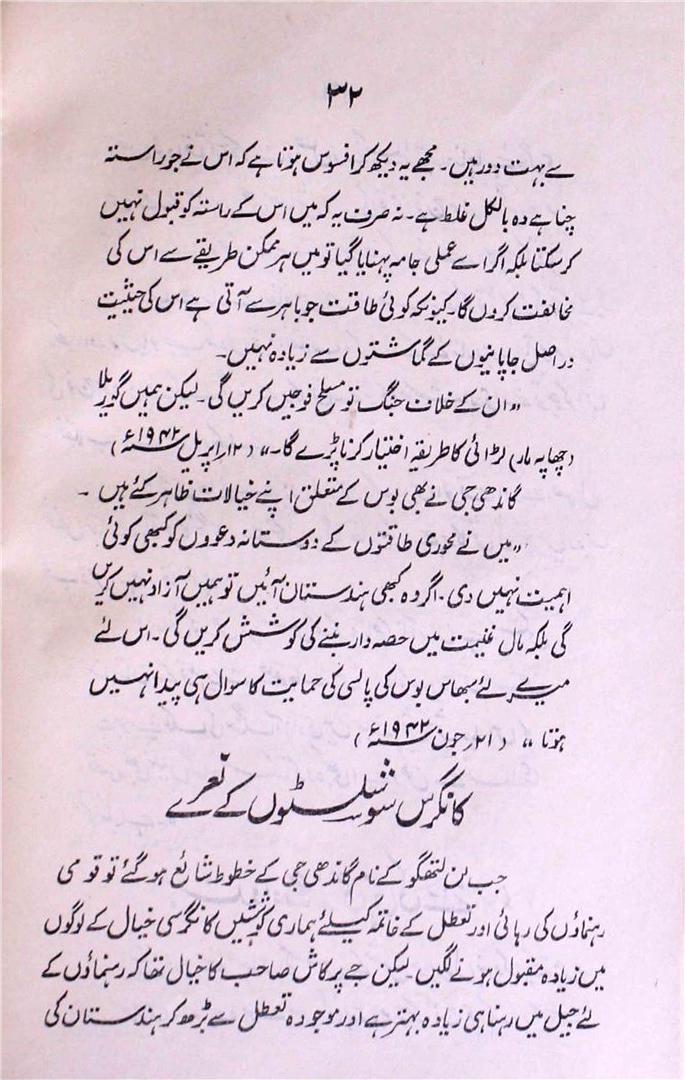 ۳۲
سے بہت دور ہیں۔ مجھے یہ دیکھ کر افسوس ہوتا ہے کہ اس نے جو راستہ
چنا ہے وہ بالکل غلط ہے۔ نہ صرف یہ کہ میں اس کے راستہ کو قبول نہیں
کر سکتا بلکہ اگر اسے عملی جامہ پہنایا گیا تو میں ہر ممکن طریقے سے اس کی
مخالفت کروں گا۔ کیونکہ کوئی طاقت جو باہر سے آتی ہے اس کی حیثیت
دراصل جاپانیوں کے گماشتوں سے زیادہ نہیں۔
„ان کے خلاف جنگ تو مسلح فوجیں کریں گی۔ لیکن ہمیں گوریلا
(چھاپہ مار) لڑائی کا طریقہ اختیار کرنا پڑے گا۔" (۱۲؍اپریل ۱۹۴۲ء)
گاندھی جی نے بھی بوس کے متعلق اپنے خیالات ظاہر کئے ہیں۔
„میں نے محوری طاقتوں کے دوستانہ دعووں کو کبھی کوئی
اہمیت نہیں دی۔ اگر وہ کبھی ہندستان آئیں تو ہمیں آزاد نہیں کریں
گی بلکہ مال غنیمت میں حصہ دار بننے کی کوشش کریں گی۔ اس لئے
میرے لئے سبھاس بوس کی پالسی کی حمایت کا سوال ہی پیدا نہیں
ہوتا" (۲۱؍جون ۱۹۴۲ء)
کانگرس سوشلسٹوں کے نعرے
جب بن لتھگو کے نام گاندھی جی کے خطوط شائع ہو گئے تو قومی
رہنماؤں کی رہائی اور تعطل کے خاتمہ کیلئے ہماری کوششیں کانگرسی خیال کے لوگوں
میں زیادہ مقبول ہونے لگیں۔ لیکن جے پرکاش صاحب کا خیال تھا کہ رہنماؤں کے
لئے جیل میں رہنا ہی زیادہ بہتر ہے اور موجودہ تعطل سے بڑھ کر ہندستان کی